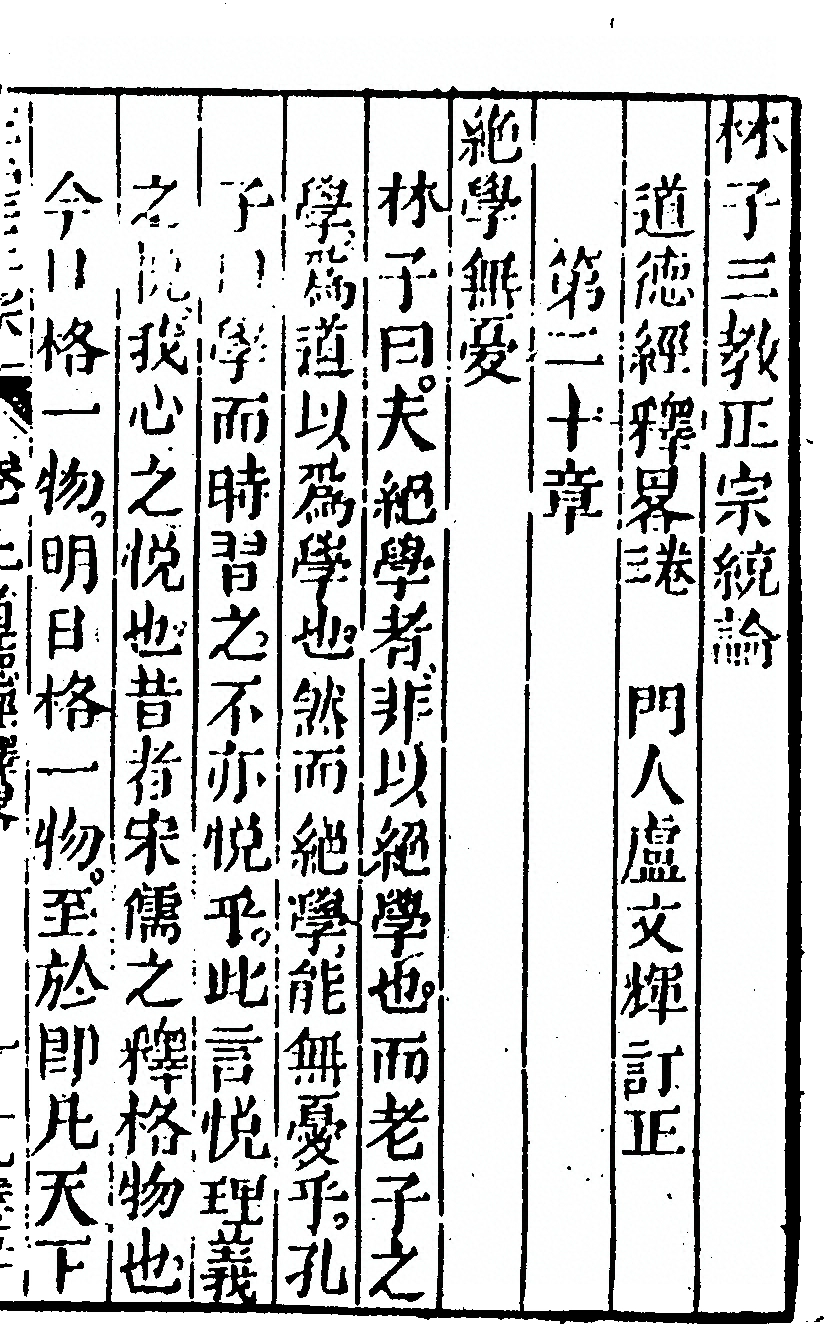 林子三教正宗統論
道德經釋畧三卷　門人盧文輝訂正
第二十章
絕學無憂
林子曰。夫絕學者、非以絕學也。而老子之
學、為道以為學也。然而絕學、能無憂乎。孔
子曰學而時習之、不亦悅乎。此言悅理義
之悅、我心之悅也。昔者宋儒之釋格物也
今日格一物。明日格一物。至於即凡天下